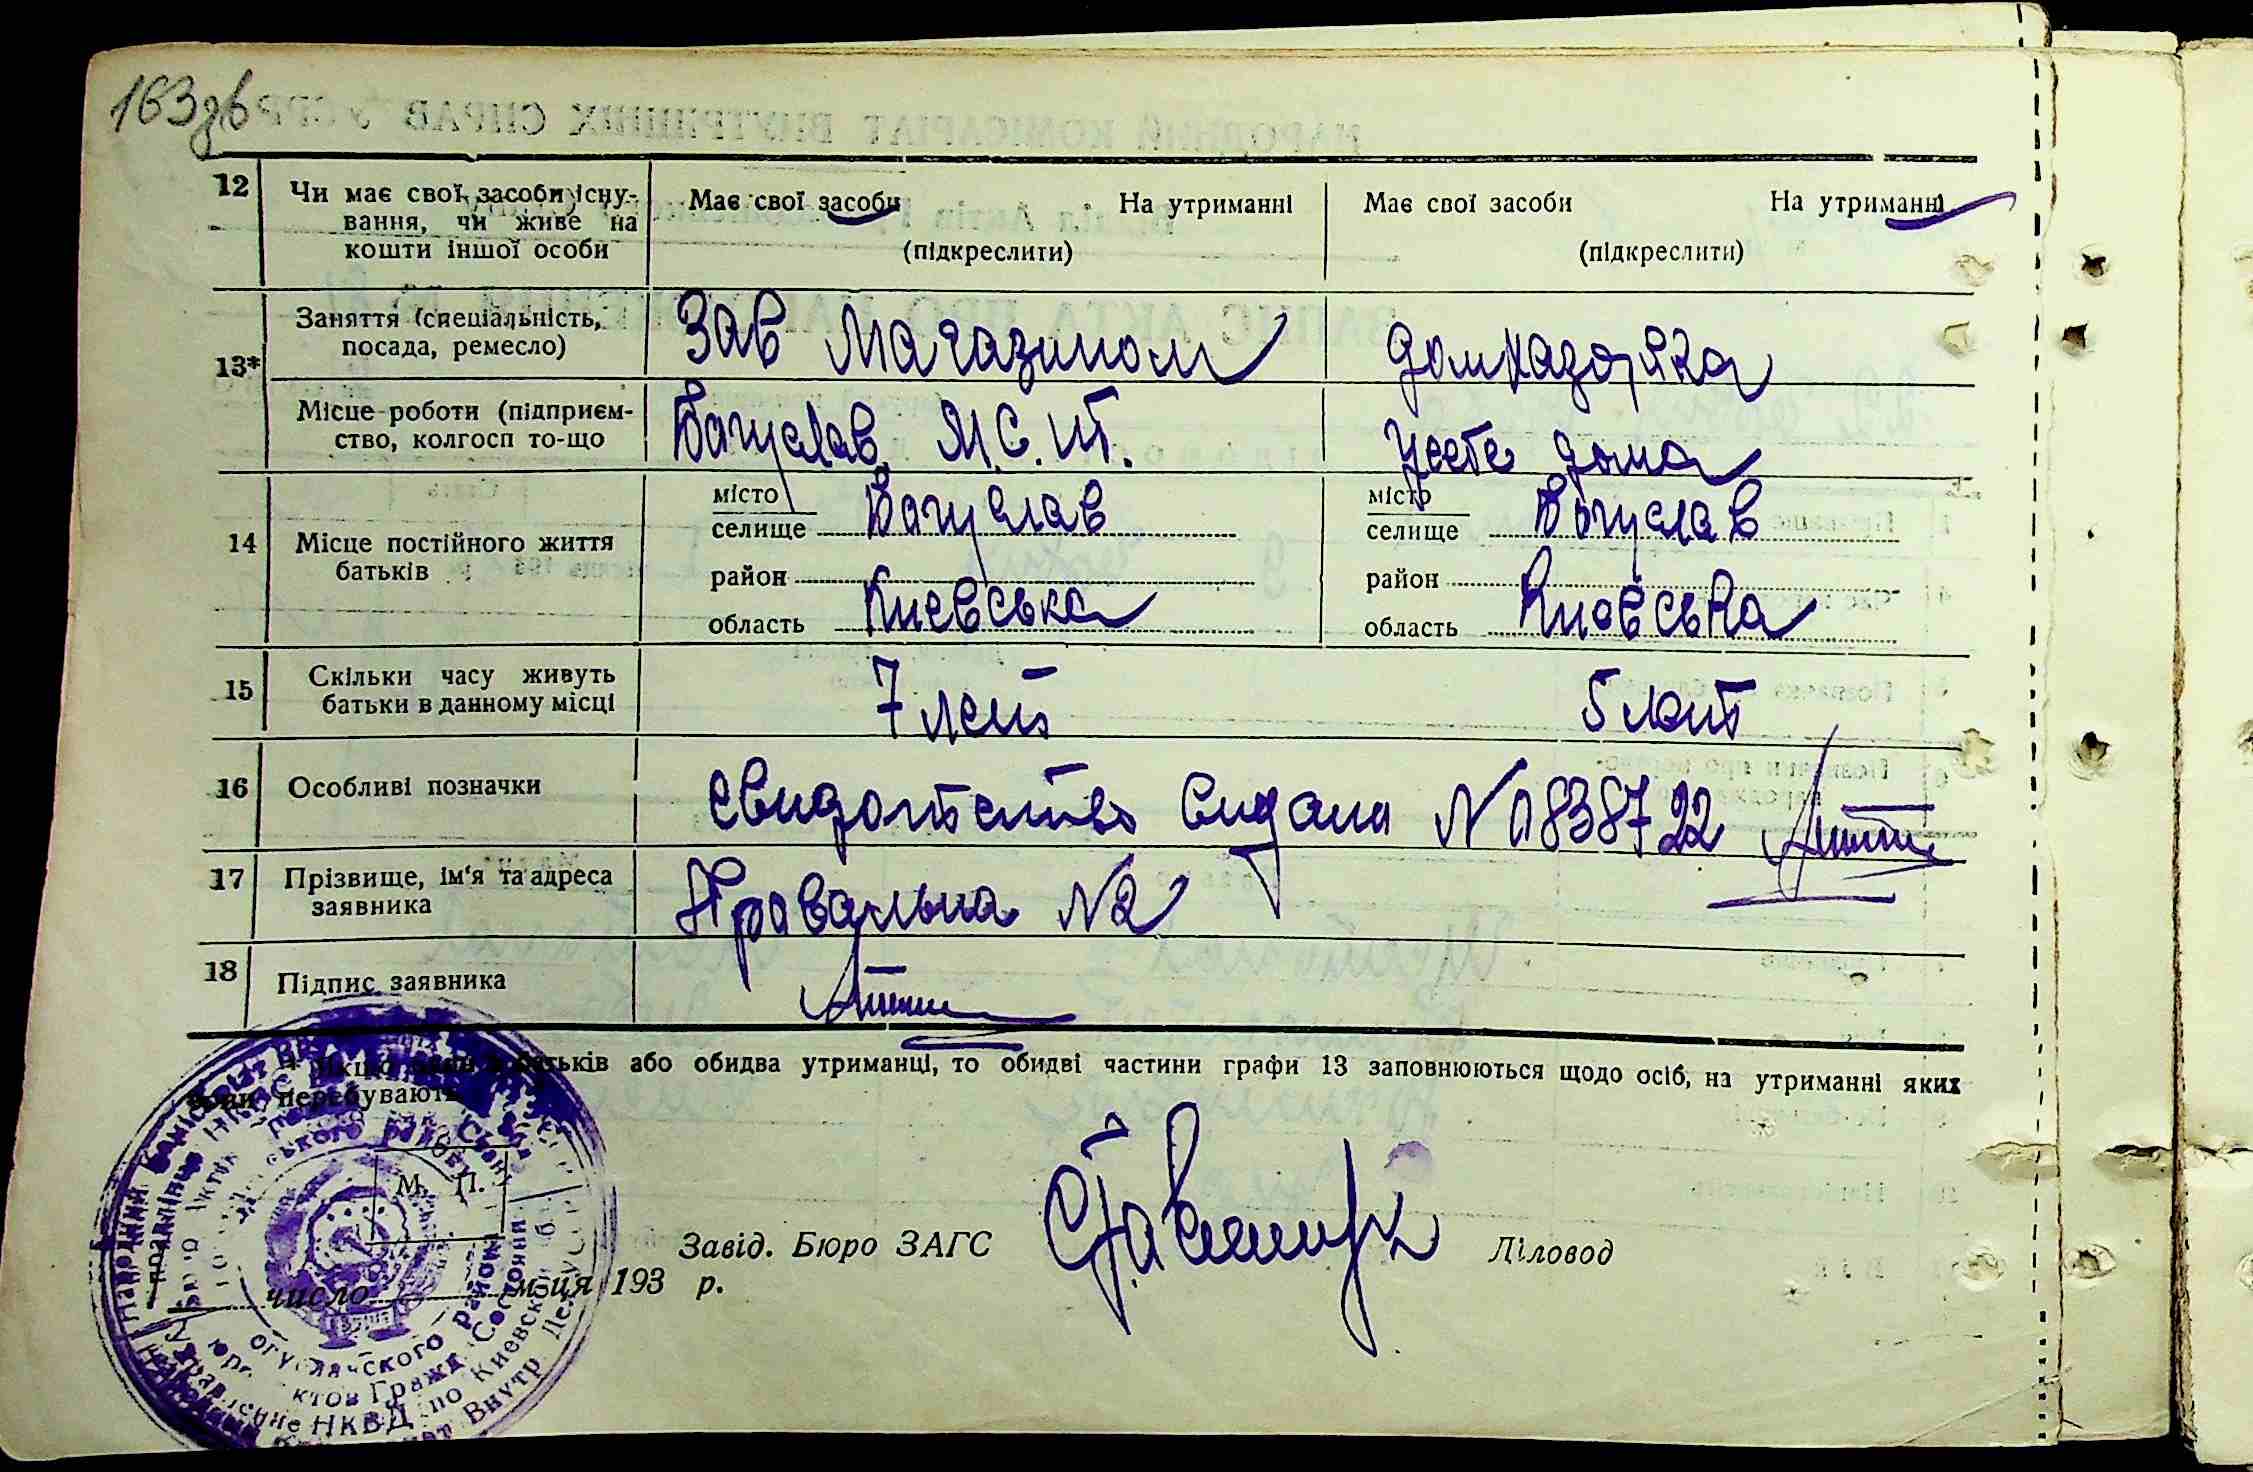 163зв
12 Чи має свої засоби існу-
вання, чи живе на
кошти іншої особи
Має свої засоби На утриманні
(підкреслити)
Має свої засоби На утриманні
(підкреслити)
13* Заняття (спеціальність,
посада, ремесло)
Зав Магазином
домхазяйка
Місце роботи (підприєм-
ство, колгосп то-що
Багуслав. М.С.Т.
дома
14 Місце постійного життя
батьків
місто
селище Багуслав
район
область Киевська
місто
селище Богуслав
район
область Киевська
15 Скільки часу живуть
батьки в данному місці
7 лет
5 лет
16 Особливі позначки
видана № 0838722
17 Прізвище, ім'я та адреса
заявника
№2
18 Підпис заявника
* Якщо один з батьків або обидва утриманці, то обидві частини графи 13 заповнюються щодо осіб, на утриманні яких
вони перебувають
М. П.
Завід. Бюро ЗАГС
Діловод
число м-ця 193 р.